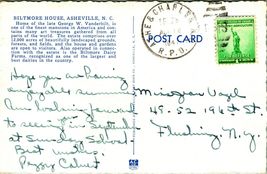 BILTMORE HOUSE, ASHEVILLE, N. C.
Home of the late George W. Vanderbilt, is
one of the finest mansions in America and con-
tains many art treasures gathered from all
parts of the world. The estate comprises over
12,000 acres of beautifully landscaped grounds,
forests, and fields, and the house and gardens
are open to visitors. Also operated in connec-
tion with the estate is the Biltmore Dairy
Farms, recognized as one of the largest and
best dairies in the country.
POST CARD
R.P.O.
Hope you are having
an enjoyable summer
looking forward
to seeing you in September
at Sunday School
Best wishes,
Peggy Calvert
Miss Joan Vogel
49-52 196th St.
Flushing, N.Y.